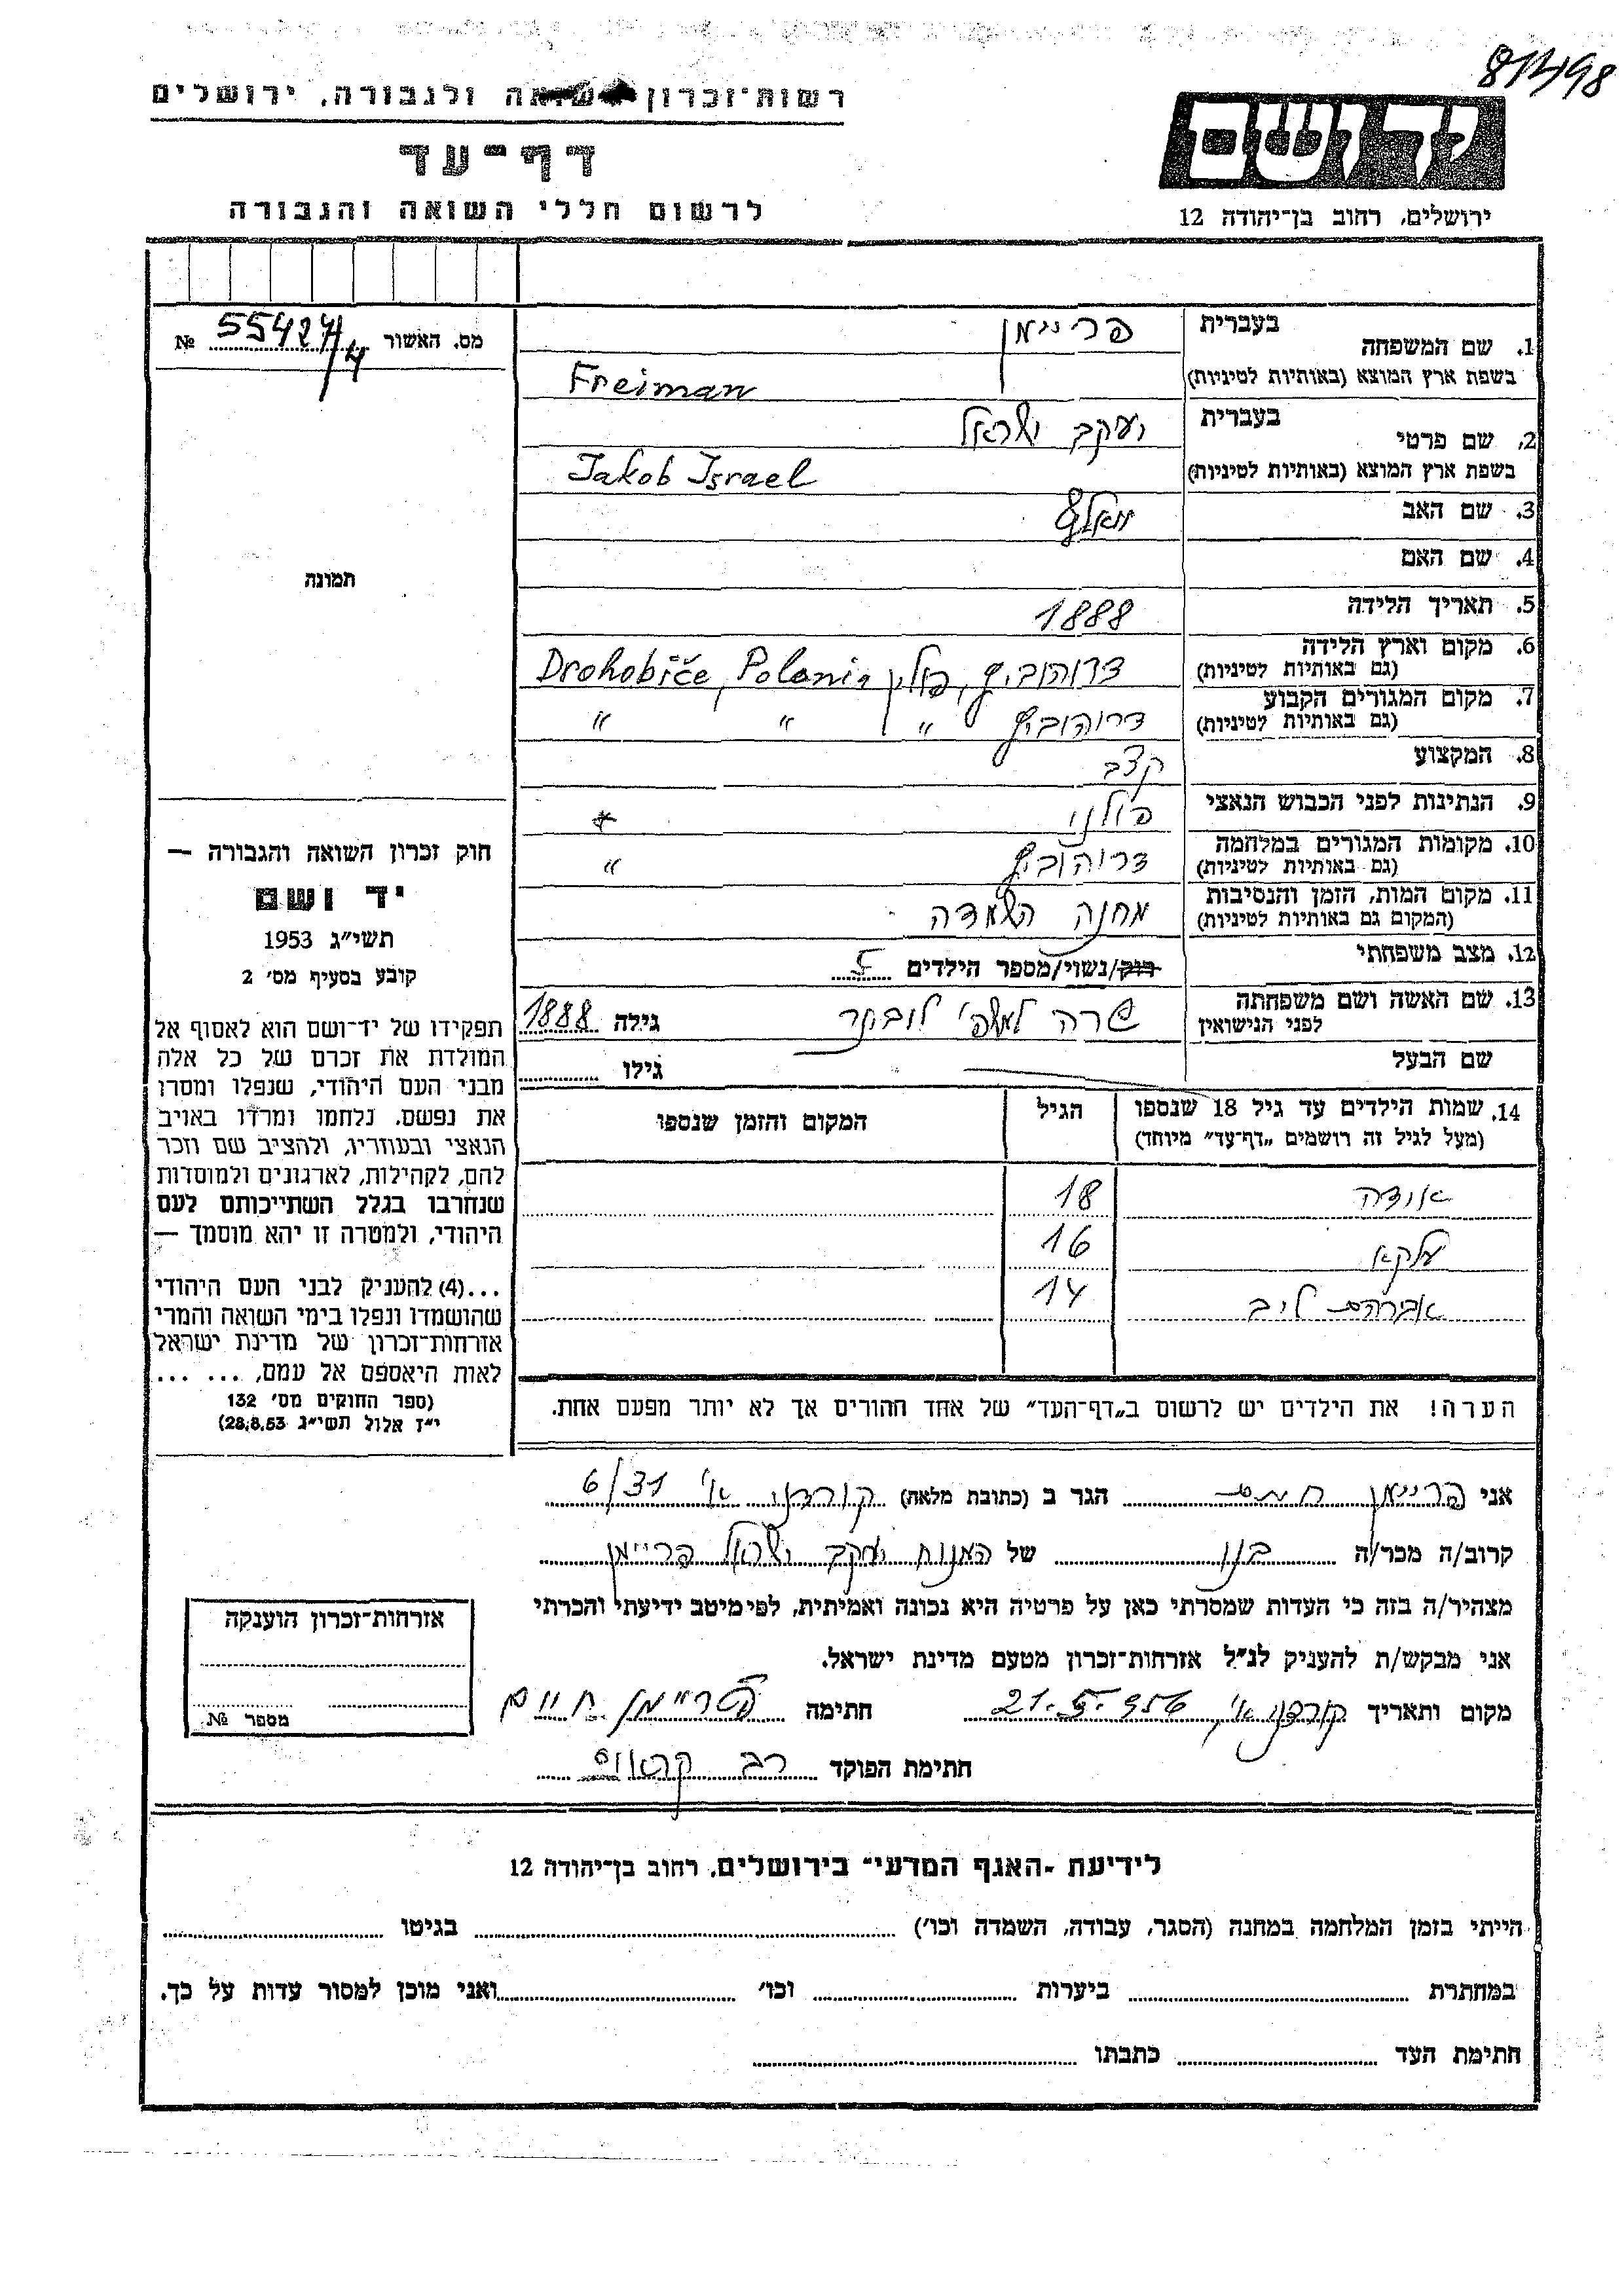 81498
רשות־זכרון ולגבורה, ירושלים
דף־עד
לרשום חללי השואה והגבורה
יד ושם
ירושלים, רחוב בן־יהודה 12
מס. האשור 55424/4 №
1. שם המשפחה
בעברית פריימן
בשפת ארץ המוצא (באותיות לטיניות) Freiman
2. שם פרטי
בעברית יעקב ישראל
בשפת ארץ המוצא (באותיות לטיניות) Jakob Israel
3. שם האב
4. שם האם
5. תאריך הלידה 1888
6. מקום וארץ הלידה
(גם באותיות לטיניות) דרוהוביץ, פולין Drohobiče, Polania
7. מקום המגורים הקבוע
(גם באותיות לטיניות) דרוהוביץ " " "
8. המקצוע קצב
9. הנתינות לפני הכבוש הנאצי פולני
10. מקומות המגורים במלחמה
(גם באותיות לטיניות) דרוהוביץ "
11. מקום המות, הזמן והנסיבות
(המקום גם באותיות לטיניות) מחנה השמדה
12. מצב משפחתי רוק/נשוי/מספר הילדים 5
13. שם האשה ושם משפחתה
לפני הנישואין שרה למשפ' גילה 1888
שם הבעל גילו
14. שמות הילדים עד גיל 18 שנספו הגיל המקום והזמן שנספו
(מעל לגיל זה רושמים „דף־עד" מיוחד)
18
16
אברהם ליב 14
הערה! את הילדים יש לרשום ב„דף־העד" של אחד ההורים אך לא יותר מפעם אחת.
תמונה
חוק זכרון השואה והגבורה —
יד ושם
תשי״ג 1953
קובע בסעיף מס׳ 2
תפקידו של יד־ושם הוא לאסוף אל
המולדת את זכרם של כל אלה
מבני העם היהודי, שנפלו ומסרו
את נפשם, נלחמו ומרדו באויב
הנאצי ובעוזריו, ולהציב שם וזכר
להם, לקהילות, לארגונים ולמוסדות
שנחרבו בגלל השתייכותם לעם
היהודי, ולמטרה זו יהא מוסמך —
...(4) להעניק לבני העם היהודי
שהושמדו ונפלו בימי השואה והמרי
אזרחות־זכרון של מדינת ישראל
לאות היאספם אל עמם, ... ...
(ספר החוקים מס׳ 132
י״ז אלול תשי״ג 28.8.53)
אני פריימן חיים הגר ב (כתובת מלאה) קורדני א' 6/31
קרוב/ה מכר/ה בנו של המנוח יעקב ישראל פריימן
מצהיר/ה בזה כי העדות שמסרתי כאן על פרטיה היא נכונה ואמיתית, לפי מיטב ידיעתי והכרתי
אני מבקש/ת להעניק לנ״ל אזרחות־זכרון מטעם מדינת ישראל.
מקום ותאריך קורדני א' 21.5.956 חתימה פריימן חיים
חתימת הפוקד
אזרחות־זכרון הוענקה
מספר №
לידיעת „האגף המדעי" בירושלים, רחוב בן־יהודה 12
הייתי בזמן המלחמה במחנה (הסגר, עבודה, השמדה וכו׳) בגיטו
במחתרת ביערות וכו׳ ואני מוכן למסור עדות על כך.
חתימת העד כתבתו